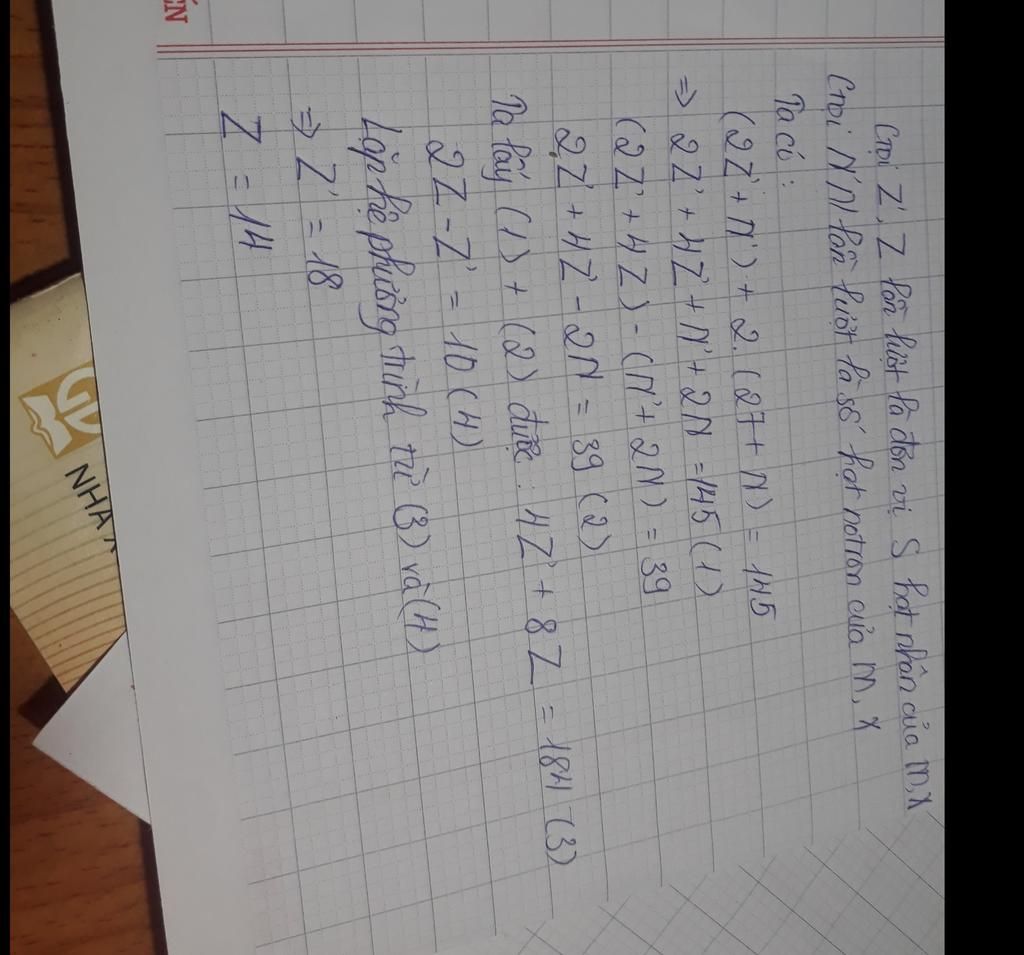 Gọi Z', Z lần lượt là đơn vị S hạt nhân của M, X
Gọi N' N lần lượt là số hạt notron của M, X
Ta có:
(2Z' + N') + 2. (27 + N) = 145
=> 2Z' + 4Z' + N' + 2N = 145 (1)
(2Z' + 4Z) - (N' + 2N) = 39
2Z' + 4Z' - 2N = 39 (2)
Ta lấy (1) + (2) được: 4Z' + 8Z = 184 (3)
2Z - Z' = 10 (4)
Lập hệ phương trình từ (3) và (4)
=> Z' = 18
Z = 14
ẾN
NHÀ X